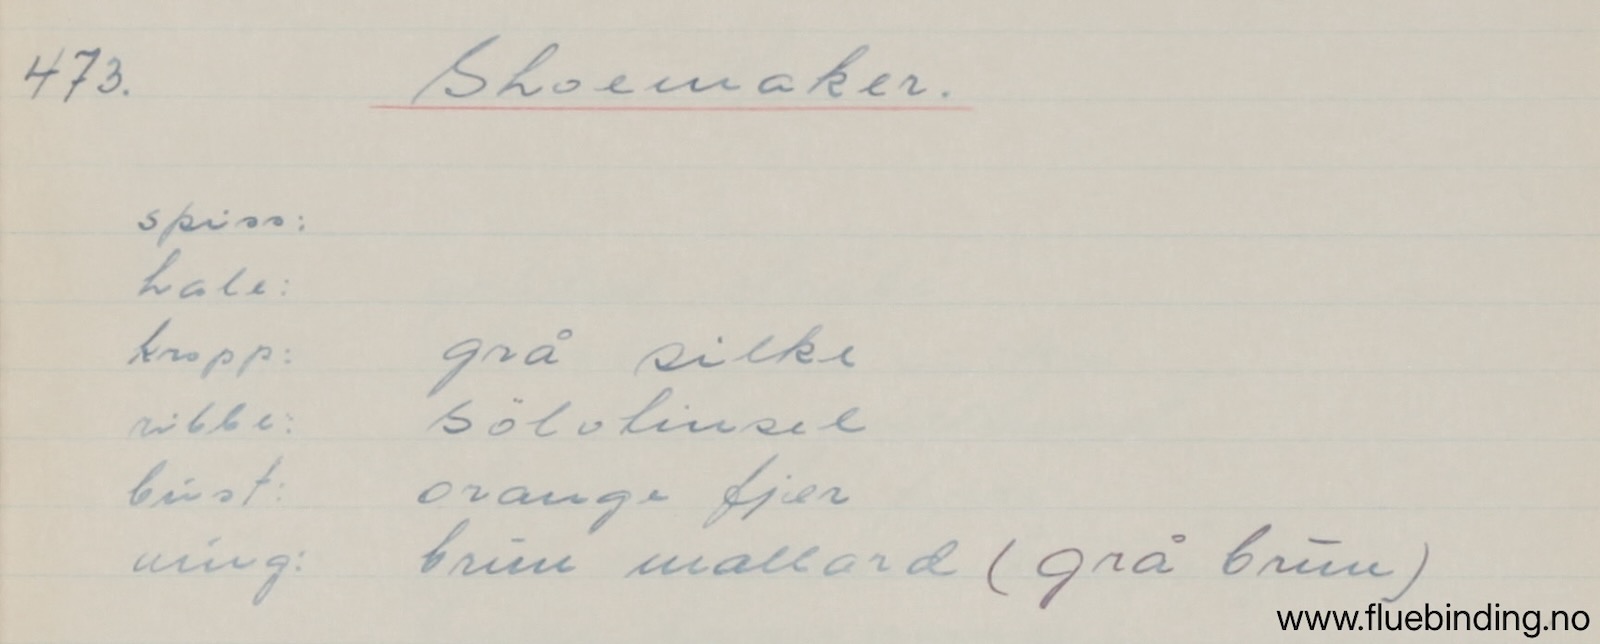 473. Shoemaker.
spiss:
hale:
kropp: grå silke
ribbe: Sölvtinsel
bust: orange fjer
ving: brun mallard (grå brun)
www.fluebinding.no